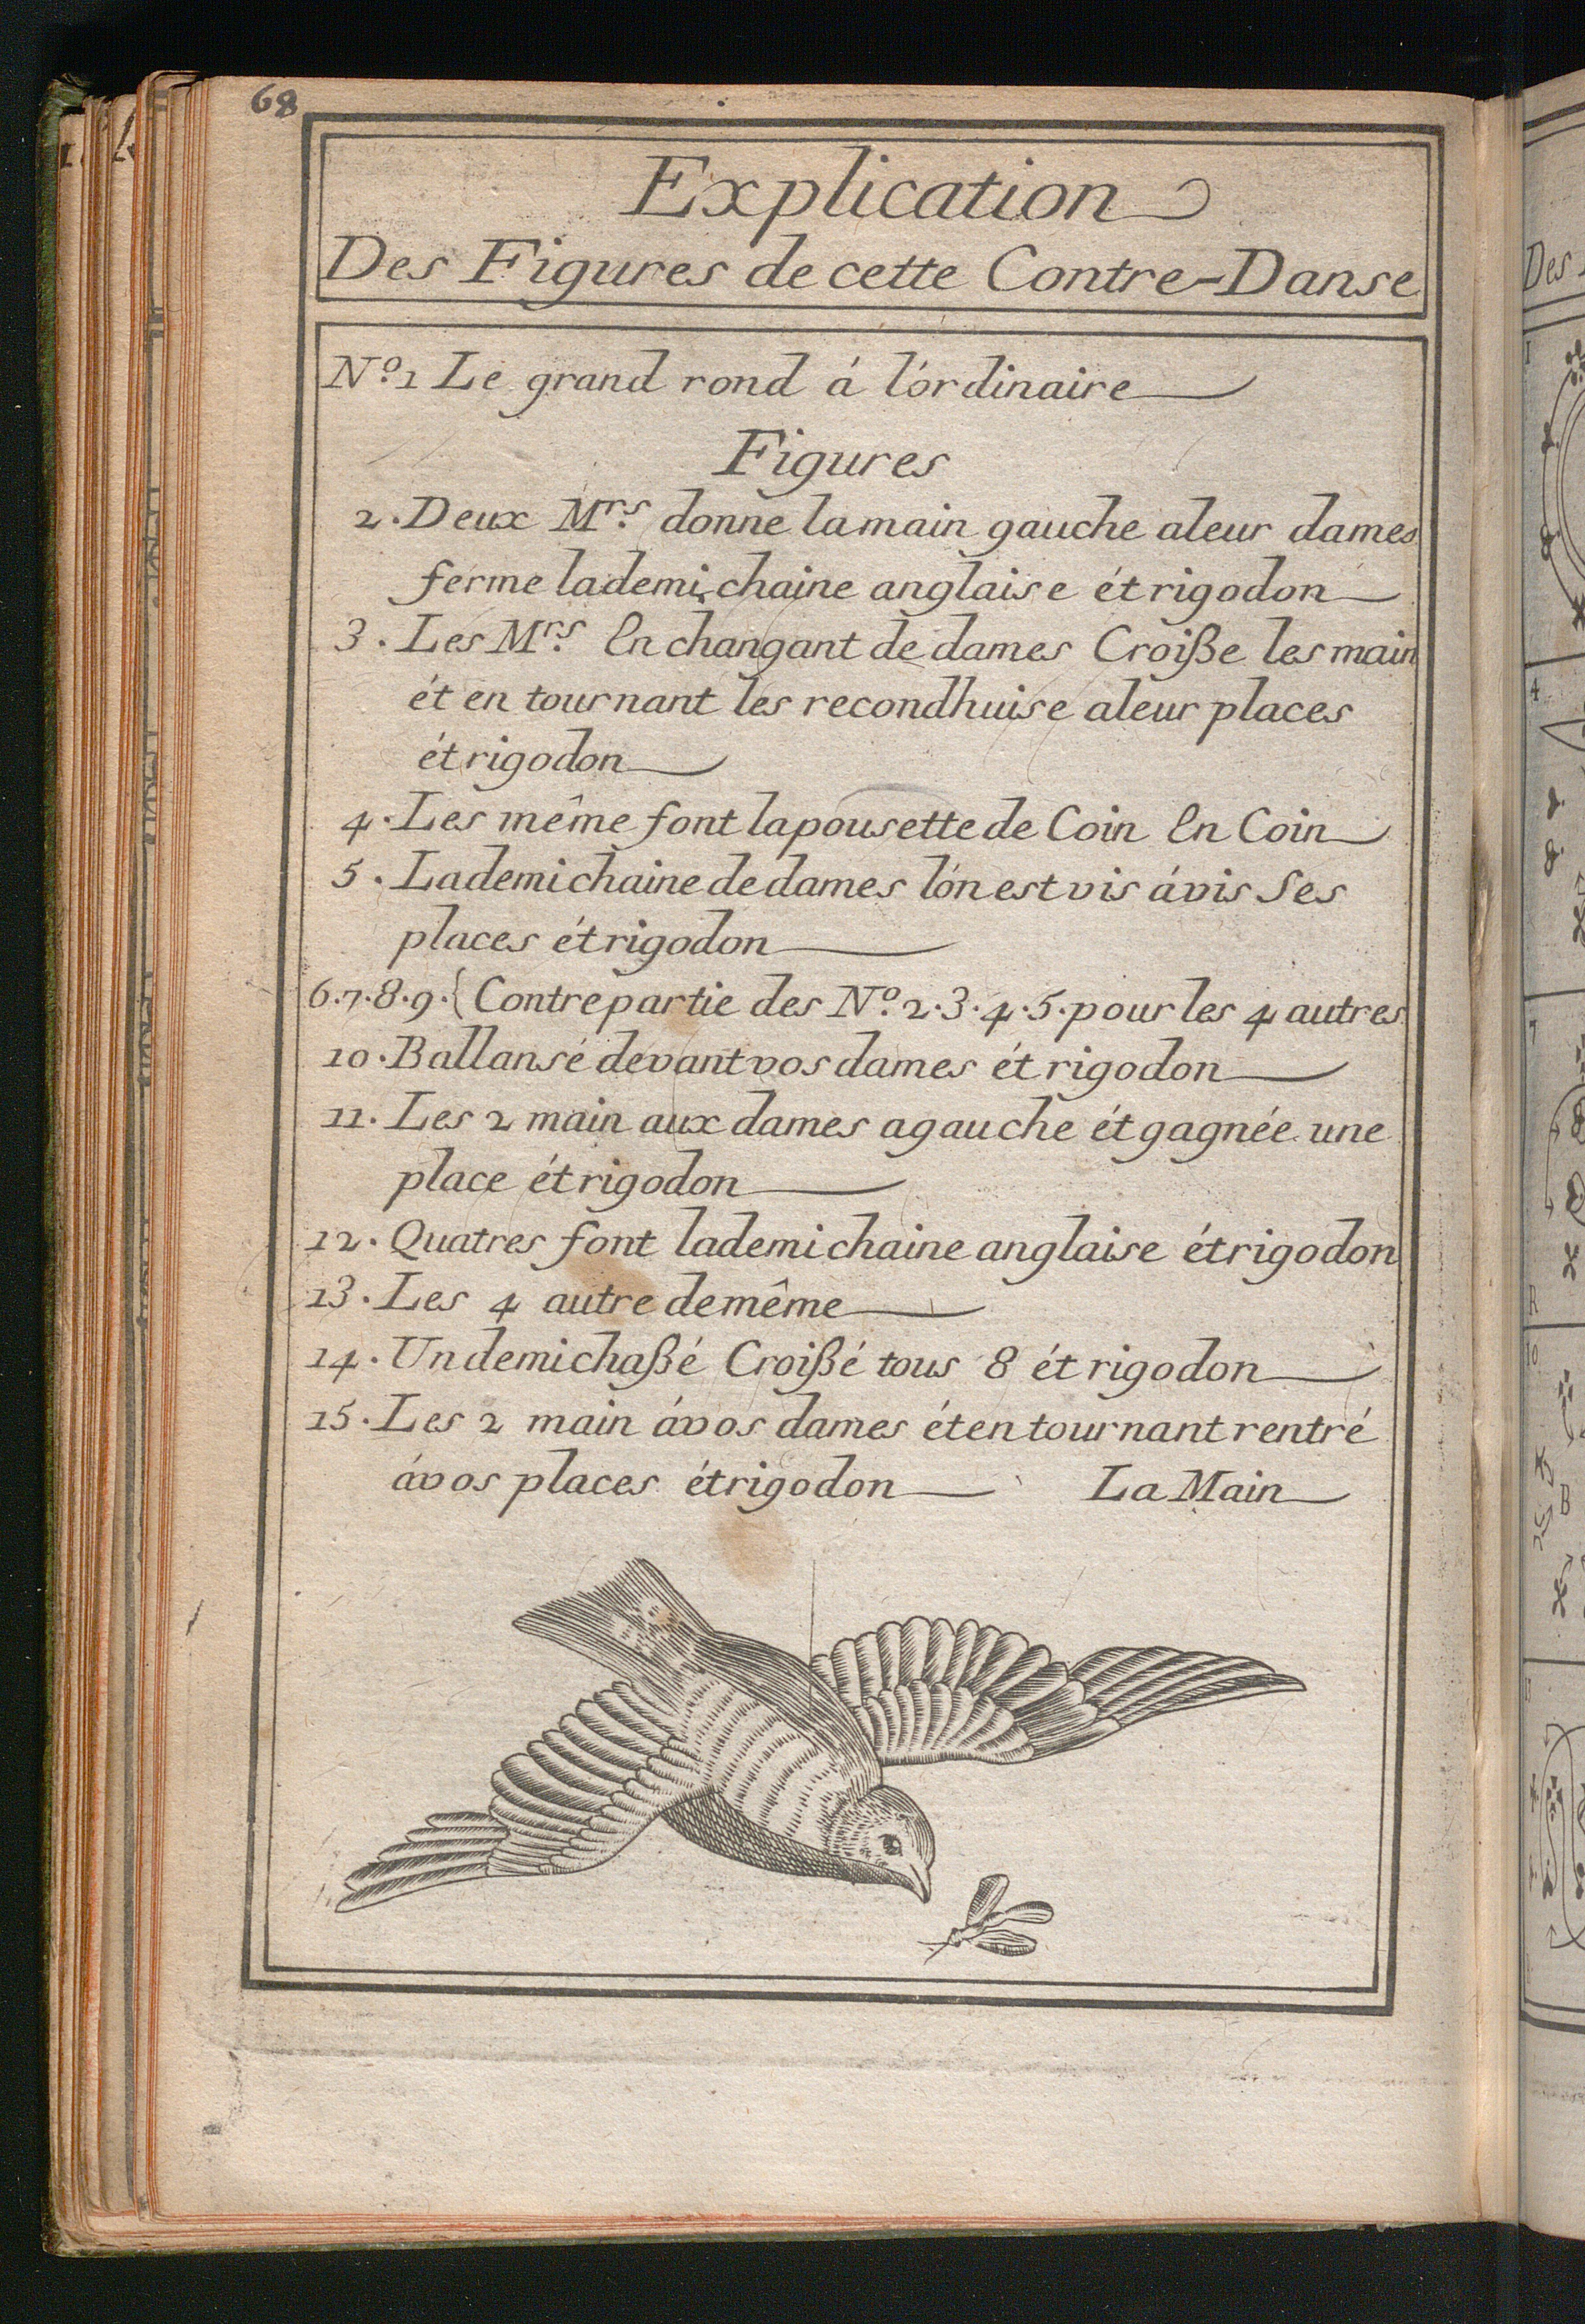 68
Explication
Des Figures de cette Contre-Danse
Nº. 1 Le grand rond á l'órdinaire
Figures
2. Deux Mrs. donne la main gauche a leur dames
ferme la demi chaine anglaise ét rigodon
3. Les Mrs. En changant de dames Croiße les main
ét en tournant les recondhuise a leur places
ét rigodon
4. Les même font la pousette de Coin En Coin
5. La demi chaine de dames l'ón est vis ávis Ses
places ét rigodon
6.7.8.9.{Contrepartie des Nº. 2.3.4.5. pour les 4 autres
10. Ballansé devant vos dames ét rigodon
11. Les 2 main aux dames a gauche ét gagnée une
place ét rigodon
12. Quatres font la demi chaine anglaise ét rigodon
13. Les 4 autre de même
14. Un demi chaßé Croißé tous 8 ét rigodon
15. Les 2 main á vos dames ét en tournant rentré
á vos places ét rigodon La Main
Des
1
4
7
R
10
B